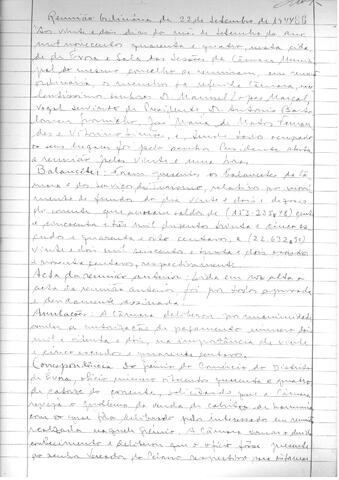 Reunião Ordinária de 22 de Setembro de 1944
Aos vinte e dois dias do mês de Setembro do ano
mil novecentos quarenta e quatro, nesta cida
de de Évora e Sala das Sessões da Câmara Muni
pal do mesmo concelho se reuniram, em sessão
ordinária, os membros da referida Câmara,
Excelentíssimos Senhores Dr. Manuel Lopes Marçal,
Vogal servindo de Presidente, Dr. António Barto
lomeu Gromicho, José Maria de Matos Fernan
des e Vitorino Simões, e, sendo todos ocupado
os seus lugares foi pelo senhor Presidente aberta
a reunião pelas vinte e uma horas.
Balancetes: Foram presentes os balancetes da Câ
mara e dos Serviços de Turismo, relativos ao movi
mento de fundos do dia vinte e dois e dezasseis
do corrente que acusam saldos de cento
e cinquenta e três mil duzentos trinta e cinco es
cudos e quarenta e oito centavos, e
vinte e dois mil seiscentos e trinta e dois escudos
e noventa centavos, respectivamente.
Acta da reunião anterior: Lida em voz alta a
acta da reunião anterior foi por todos aprovada
e devidamente assinada.
Anulação: A Câmara deliberou por unanimidade
anular a autorização de pagamento número dois
mil e oitenta e dois, na importância de vinte
e cinco escudos e quarenta centavos.
Correspondência: Do Grémio do Comércio do Distrito
de Évora, ofício número oitocentos quarenta e quatro
de catorze do corrente, solicitando que a Câmara
o problema da venda de de harmonia
com o que foi deliberado pelos interessados em reunião
realizada naquele Grémio. A Câmara tomou o devido
conhecimento e deliberou que o ofício fosse presente
ao senhor Vereador do